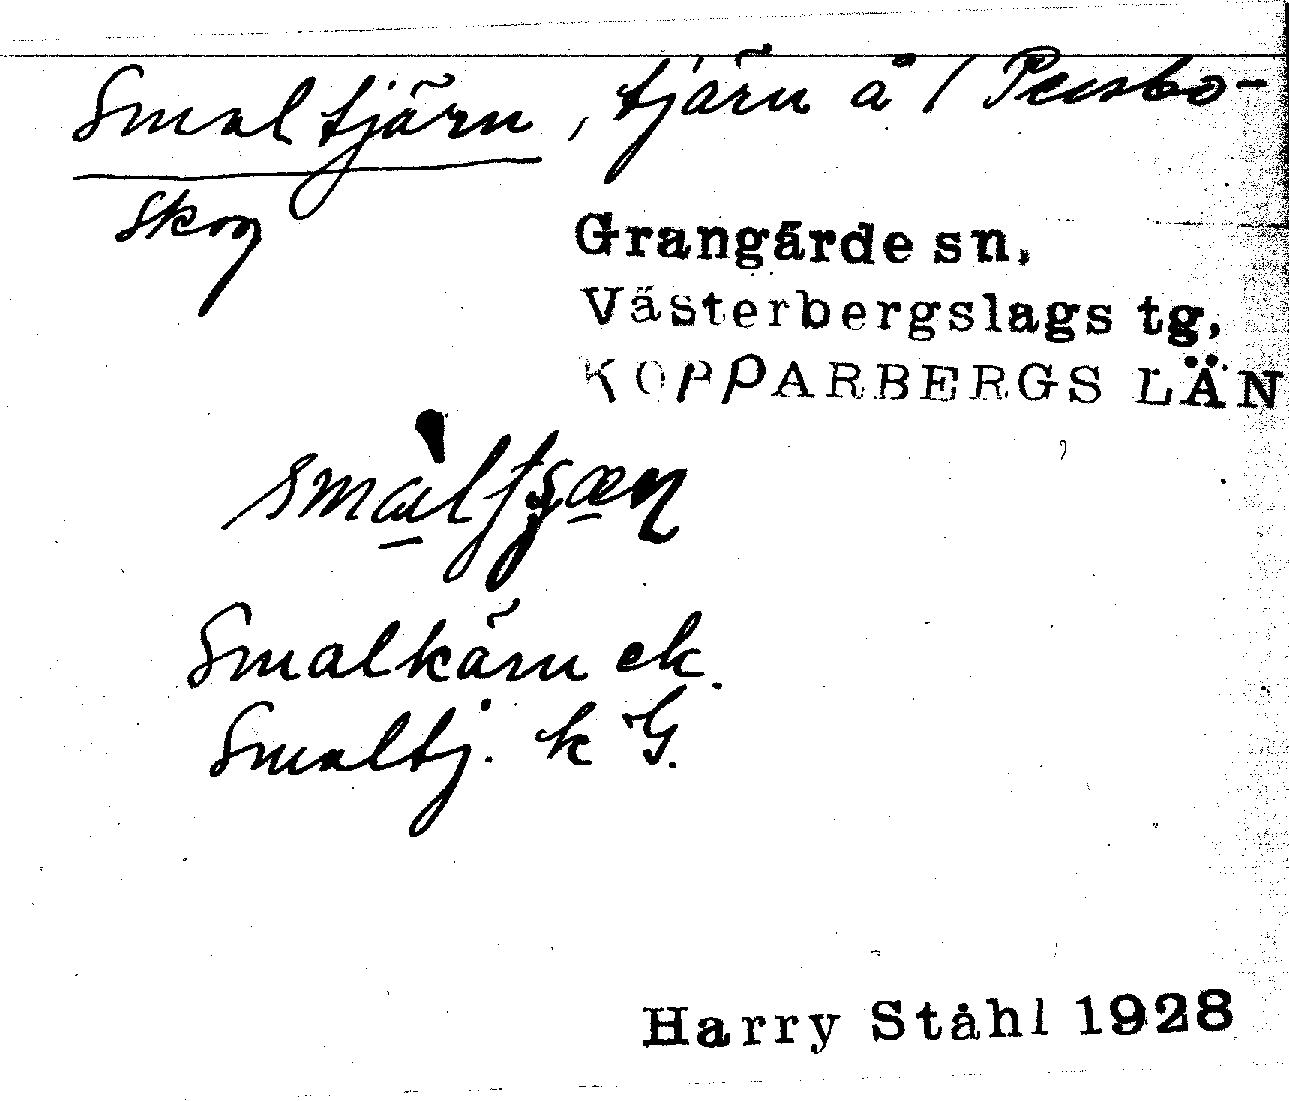 Smaltjärn, tjärn å / Pensbo-
skog
Grangärde sn,
Västerbergslags tg,
KOPPARBERGS LÄN
Smalkärn ek.
Smaltj. k G.
Harry Ståhl 1928